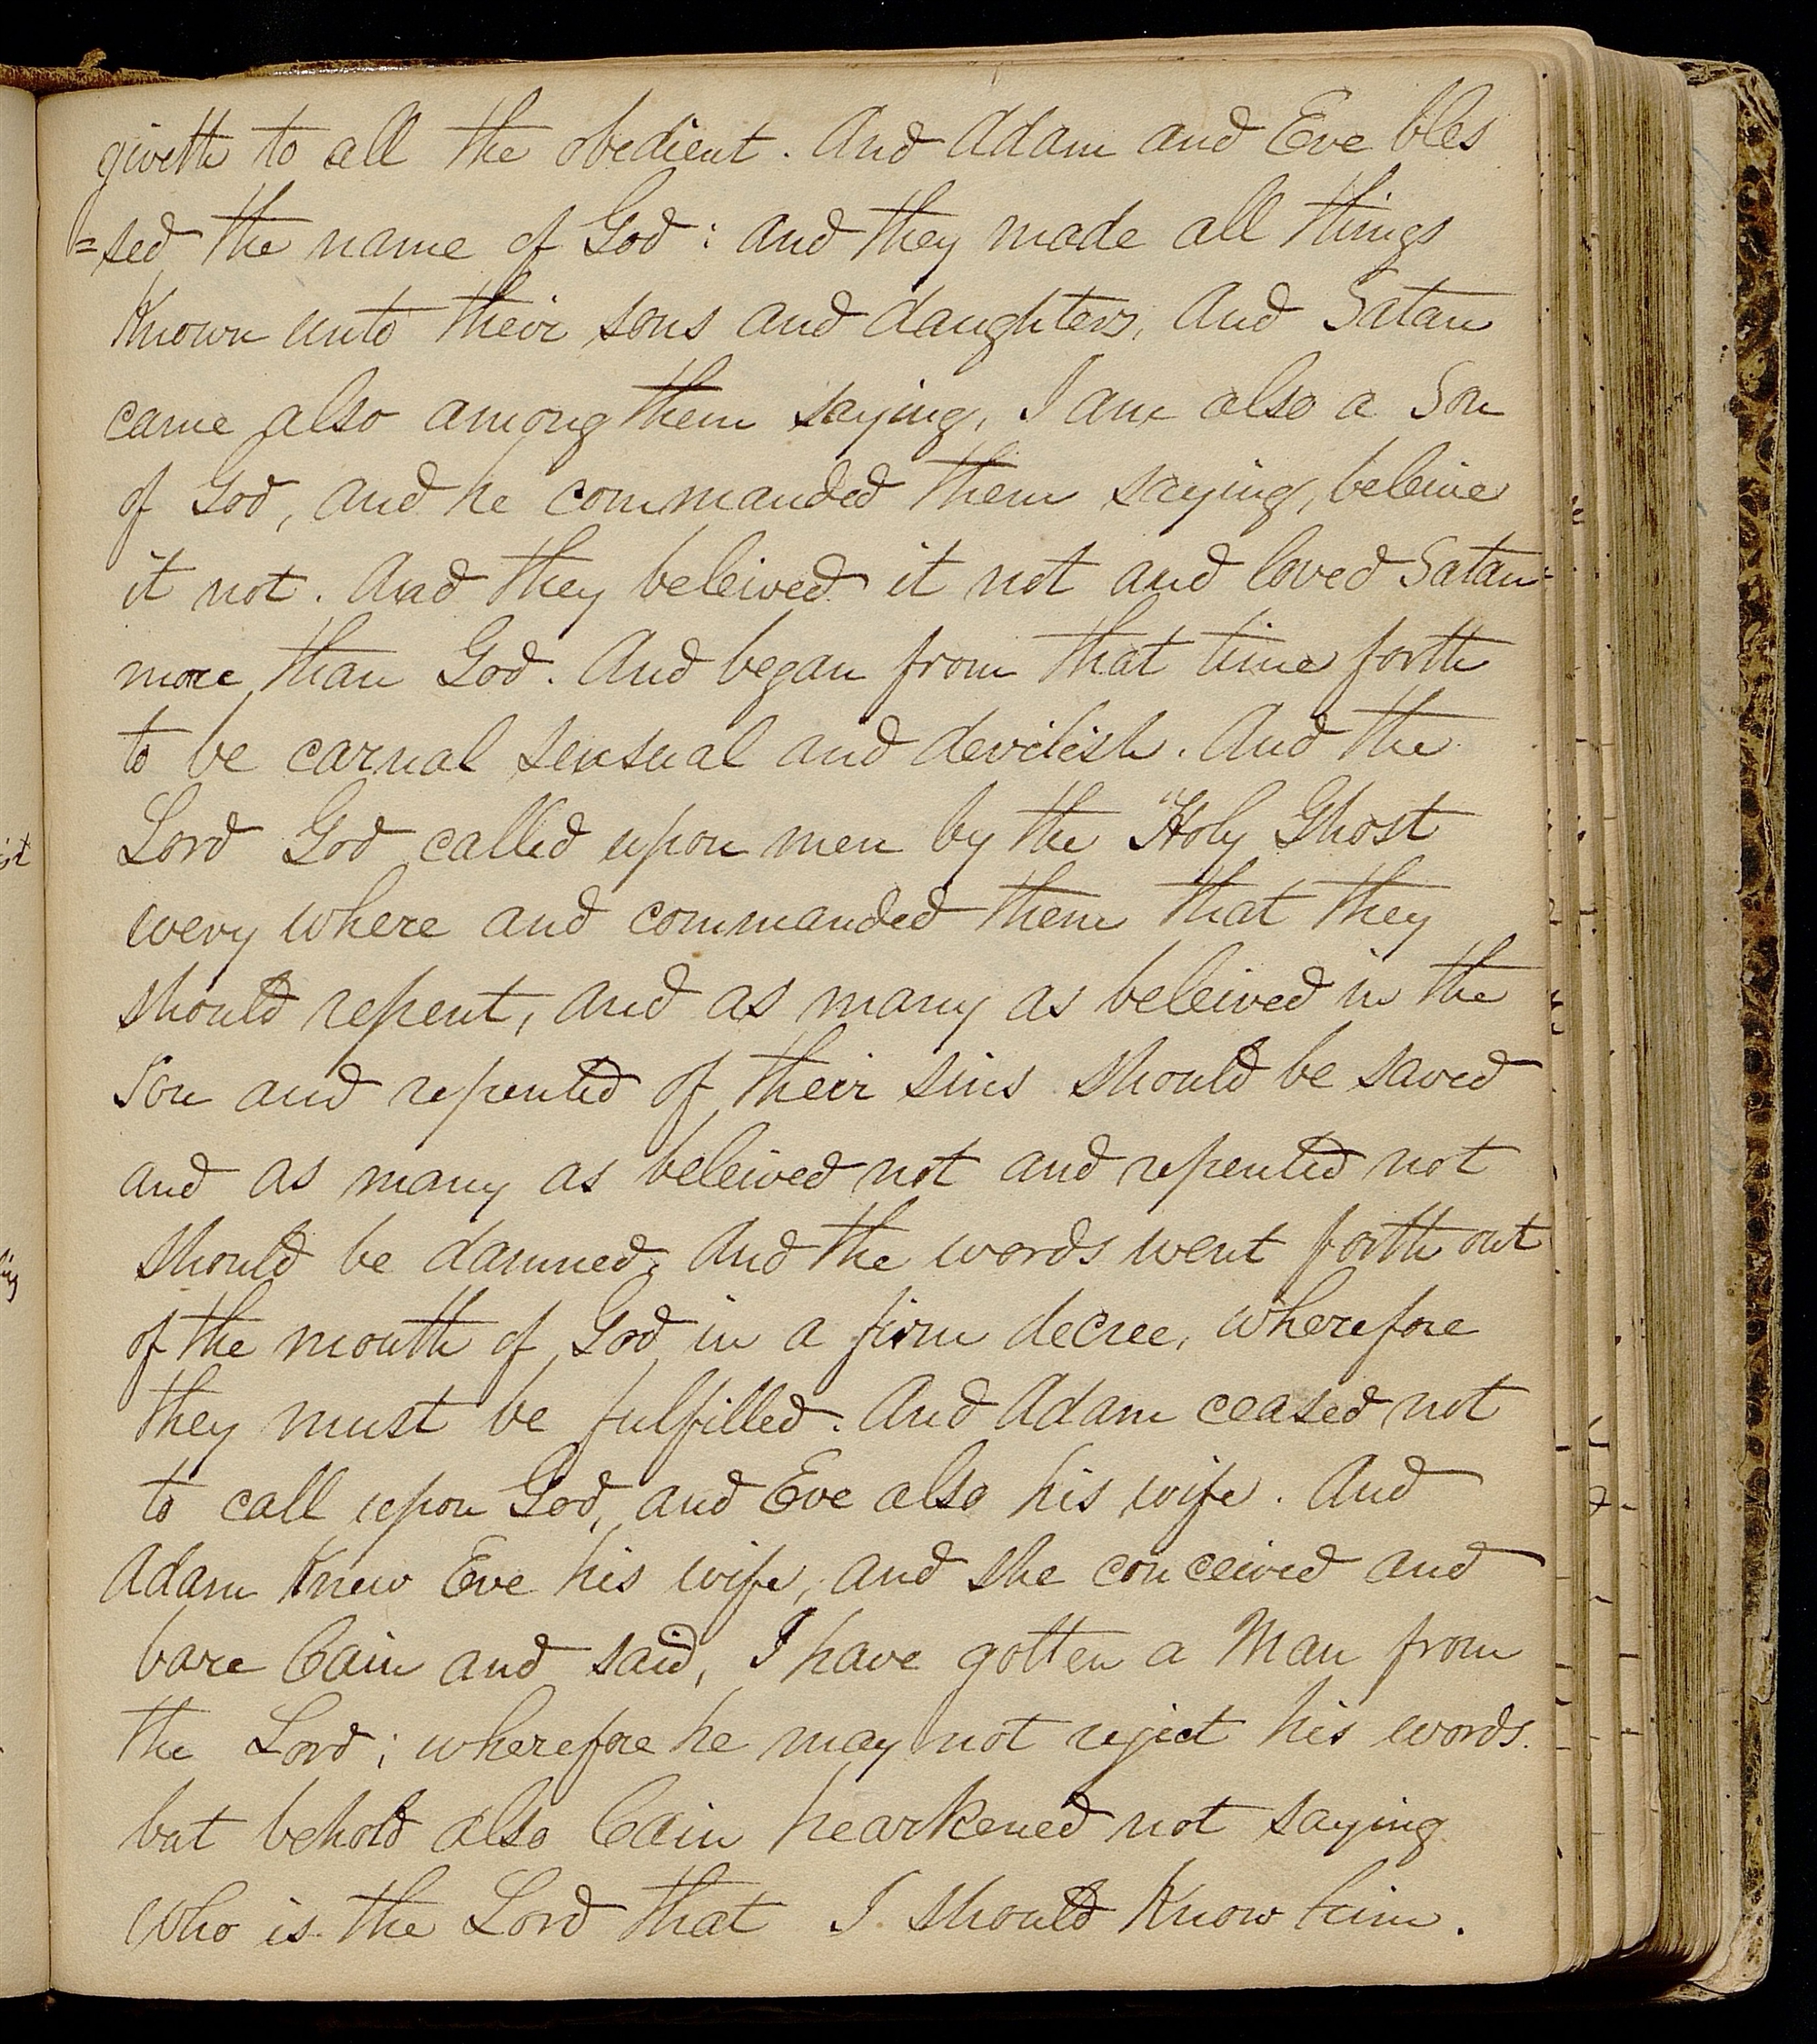 giveth to all the obedient. And Adam and Eve bles
=sed the name of God: and they made all things
Known unto their sons and daughters, And Satan
came also among them saying, I am also a Son
of God, and he commanded them saying, beleive
it not. And they beleived it not and loved Satan
more than God. And began from that time forth
to be carnal sensual and devilish. And the
Lord God called upon men by the Holy Ghost
every where and commanded them that they
should repent, and as many as beleived in the
Son and repented of their sins should be saved
and as many as beleived not and repented not
should be damned, And the words went forth out
of the mouth of God in a firm decree, wherefore
they must be fulfilled. And Adam ceased not
to call upon God, and Eve also his wife. And
Adam Knew Eve his wife, and she conceived and
bare Cain and said, I have gotten a Man from
the Lord; wherefore he may not reject his words.
but behold also Cain hearkened not saying
who is the Lord that I should Know him.